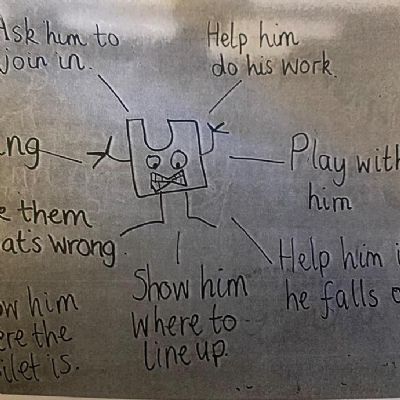 Ask him to
join in.
Help him
do his work.
ng
Play with
him
e them
ats wrong.
Help him i
he falls o
Show him
where to
line up.
ow him
ere the
ilet is.